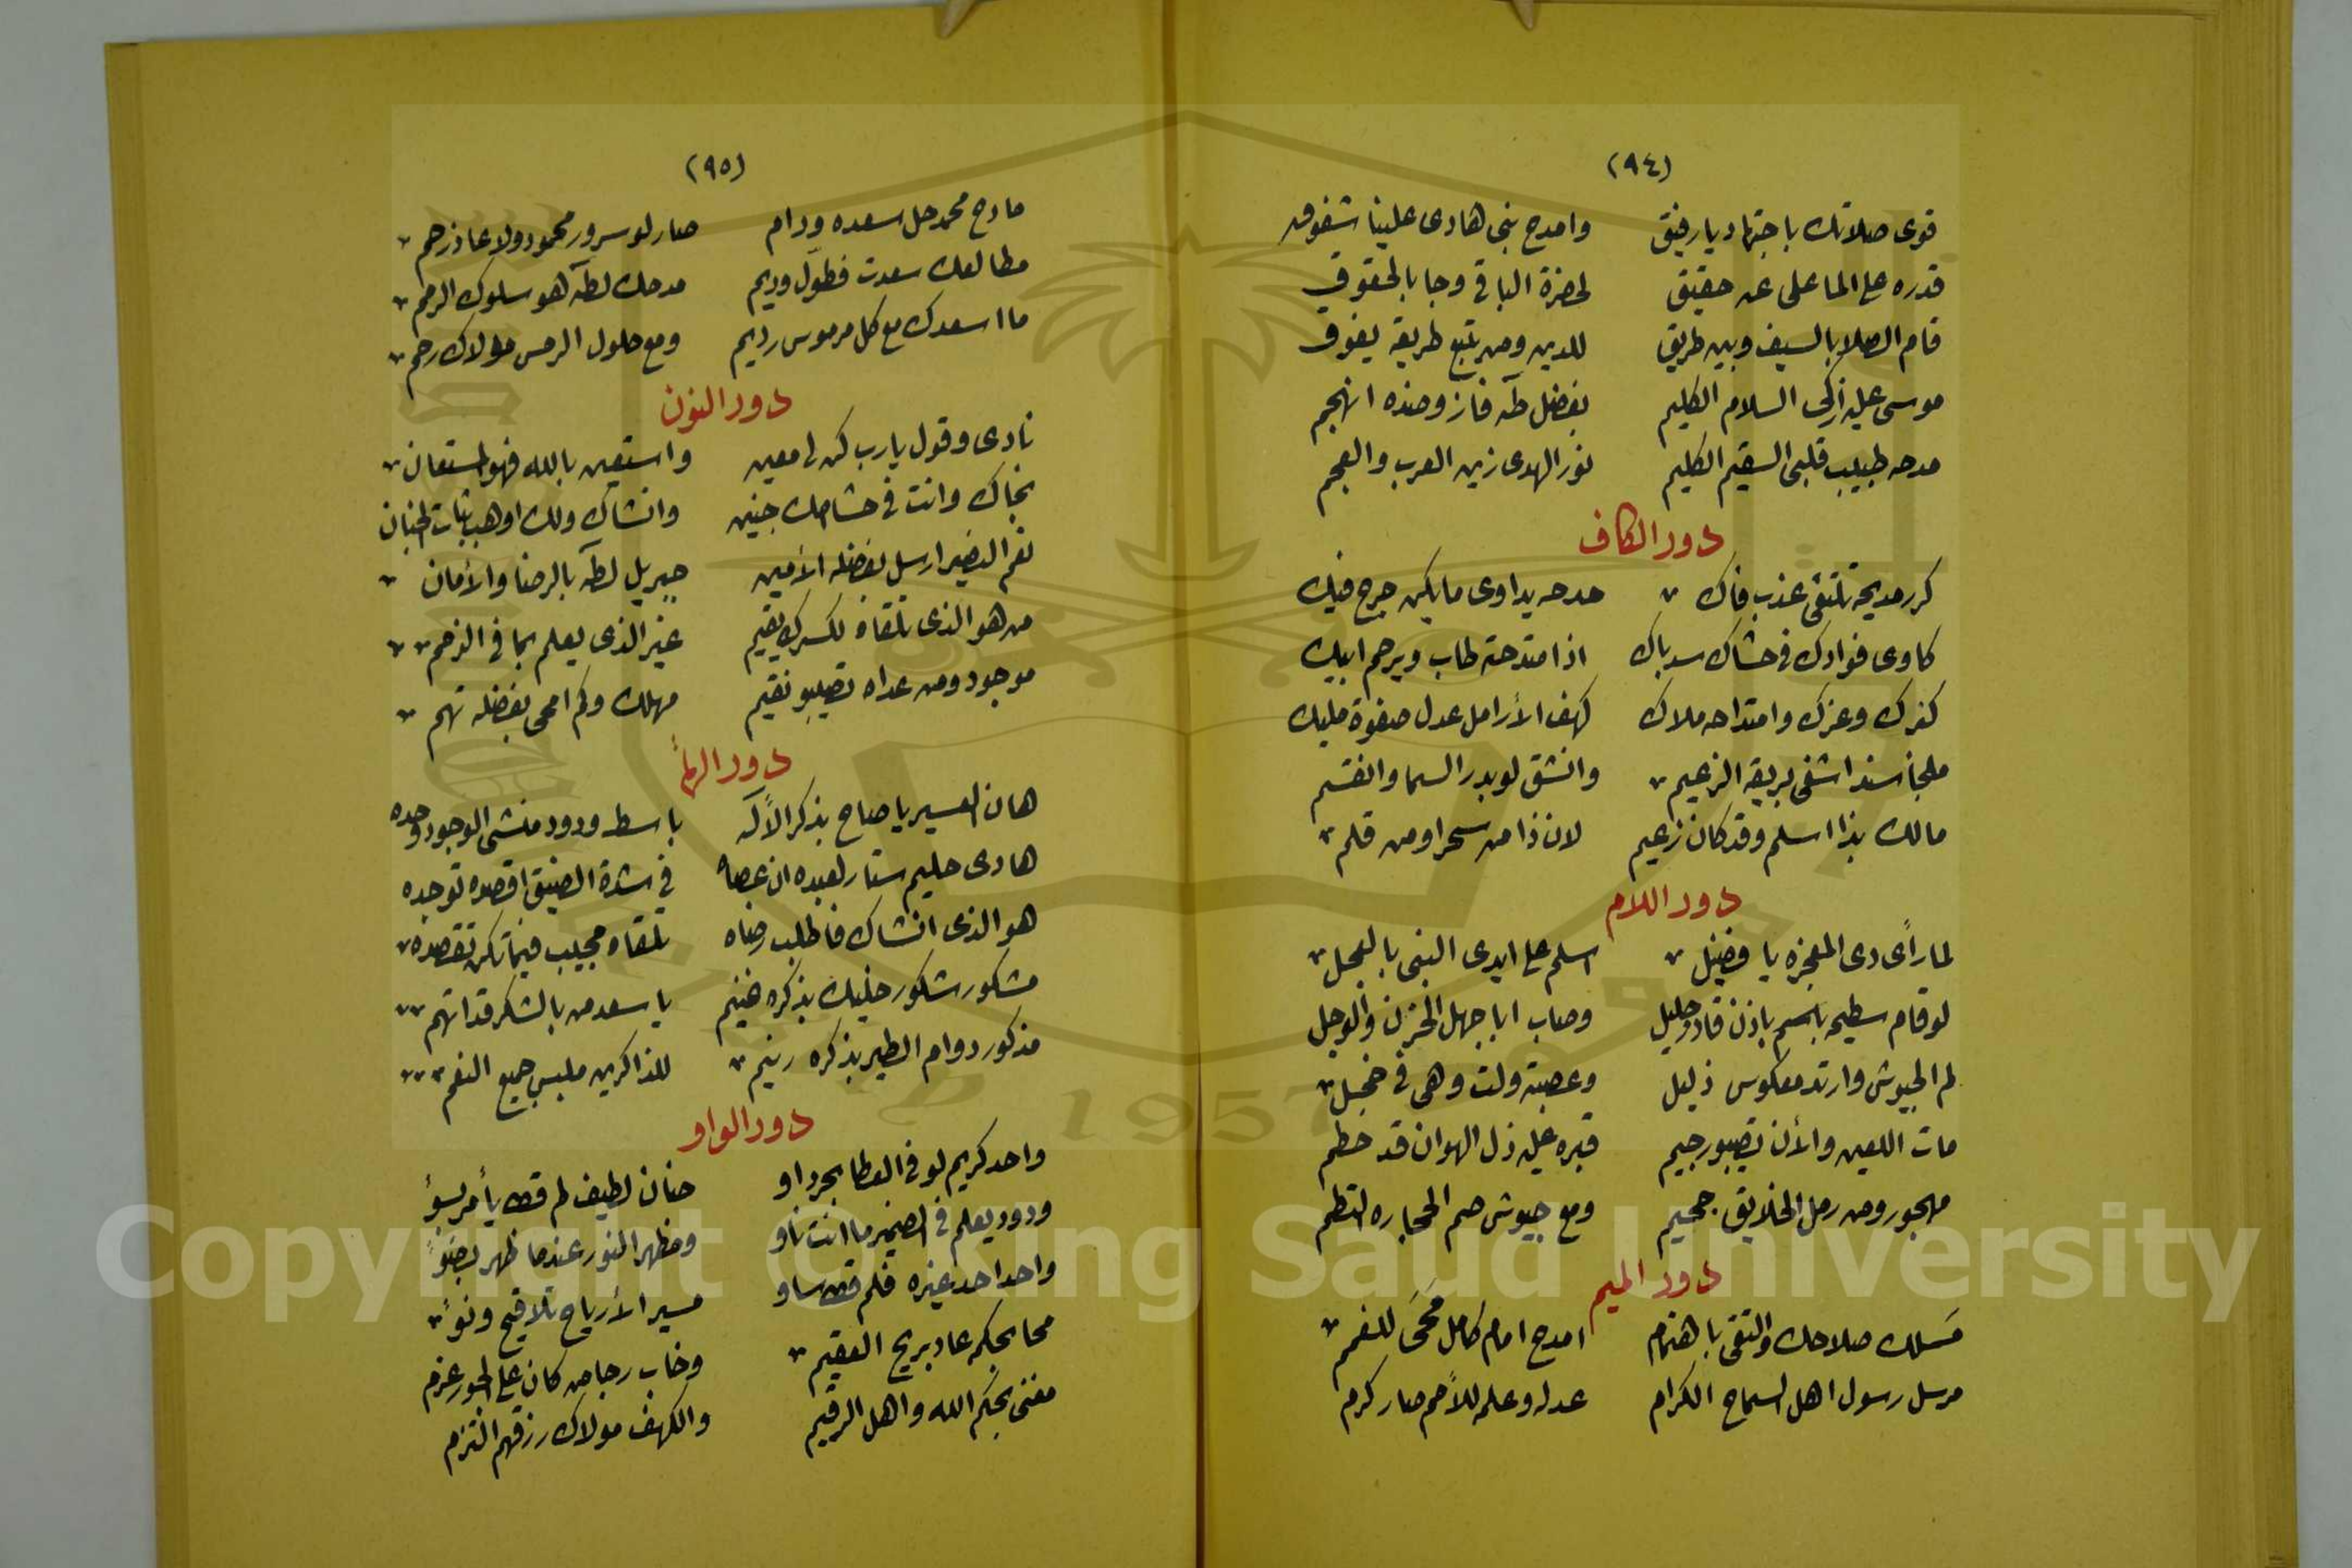 (٩٤)
قوى صلاتك باجتهاد يا رفيق وامدح نبى هادى علينا شفوق
قدره على الما على عن حقيق لحضرة الباقى وجا بالحقوق
قام الصلا بالسيف وبين طريق للدين ومن يتبع طريقه يفوق
موسى عليه ازكى السلام الكليم بفضل طه فاز وضده انهجم
مدحه طبيب قلبى السقيم الكليم نور الهدى زين العرب والعجم
دور الكاف
كرر مديحه تلتقى عذب فاك مدحه يداوى ما يكن جرح فيك
كاوى فوادك فى حشاك سد باك اذا متدحته طاب ويرحم ابيك
كنزك وعزك وامتداحه ملاك كهف الأرامل عدل صفوة مليك
ملجأ سندا شفى بريقه الزعيم وانشق لو بدر السما وانقسم
مالك بذا اسلم وقد كان زعيم لان ذا من سحر او من قلم
دور اللام
لما رأى دى المعجزه يا فضيل اسلم على ايدى النبى بالعجل
لو قام سطيحه باسم باذن قادر جليل وصاب ابا جهل الحزن والوجل
لم الجيوش وارتد معكوس ذليل وعصبته ولت وهى فى خجل
مات اللعين والأن نصيبو رجيم قبره عليه ذل الهوان قد حطم
مهجور ومن رمل الخلايق جحيم ومع جيوش حم الحجاره التطم
دور الميم
مَسلك صلاحك والتقى باهتمام امدح امام كامل محَى للغمم
مرسل رسول اهل السماح الكرام عدله وعلمه للأمم صار كرم
(٩٥)
مادح محمد حل سعده ودام صار لو سرور محمود ولا عاد زحم
مطالعك سعدت فطوّل وديم مدحك لطه هو سلوك الرحم
ما اسعدك مع كل مرموس رديم ومع حلول الرمس مولاك رحم
دور النون
نادى وقول يارب كن لى معين واستعين بالله فهو المستعان
نجاك وانت فى حشا امك جنين وانشاك ولك اوهب ثبات الجنان
نعم النصير ارسل بفضله الأمين جبريل لطه بالرضا والأمان
من هو الذى تلقاه لكسرك يقيم غير الذى يعلم بما فى الرحم
موجود ومن عداه نصيبو نقيم مهلك وكم امحى بفضله تهم
دور الهأ
هان العسير يا صاح بذكر الأله باسط ودود منشى الوجود وحده
هادى حليم ستار لعبده ان عصاه فى شدة الضيق اقصده توجده
هو الذى انشاك فاطلب رضاه تلقاه مجيب فيما تكن تقصده
مشكور شكور خليك بذكره هنيم يا سعد من بالشكر قد اتهم
مذكور دوام الطير بذكره رنيم للذاكرين ملبس جميع النعم
دور الواو
واحد كريم لو فى العطا بحر داو حنان لطيف لم قط يأمر بسوُ
ودود يعلم فى الضمير ما انت ناو ومظهر النور عندما ظهر بضوُ
واحد احد غيره فلم قط ساو مسير الأرياح تلاقيح ونوُ
محا بحكمه عاد بريح العقيم وخاب رجا من كان على الجور عزم
مفنى بحكم الله واهل الرقيم والكهف مولاك رزقهم التزم